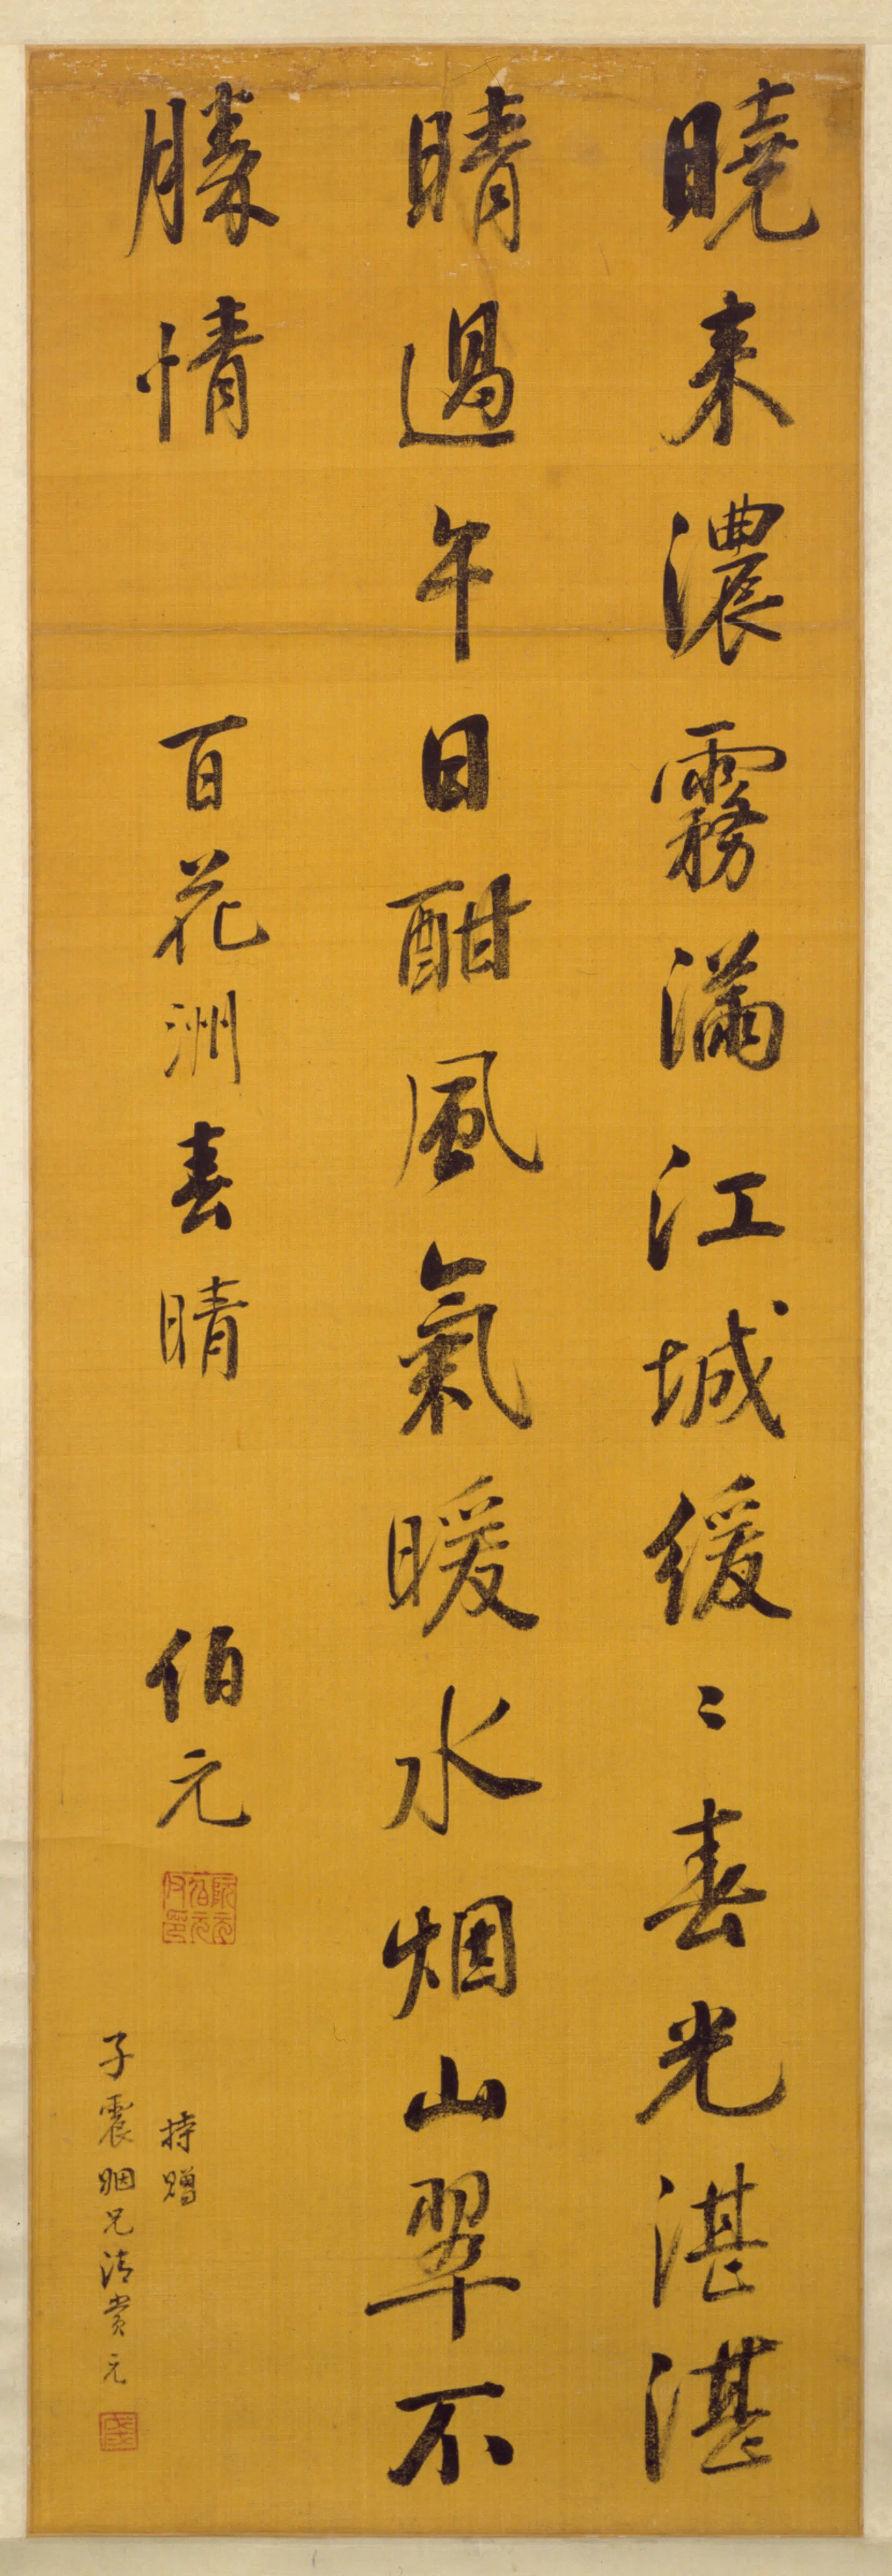 曉来濃霧滿江城緩〻春光湛湛
晴過午日酣風氣暖水烟山翠不
勝情
百花洲春晴
伯元
持贈
子震姻兄清賞元